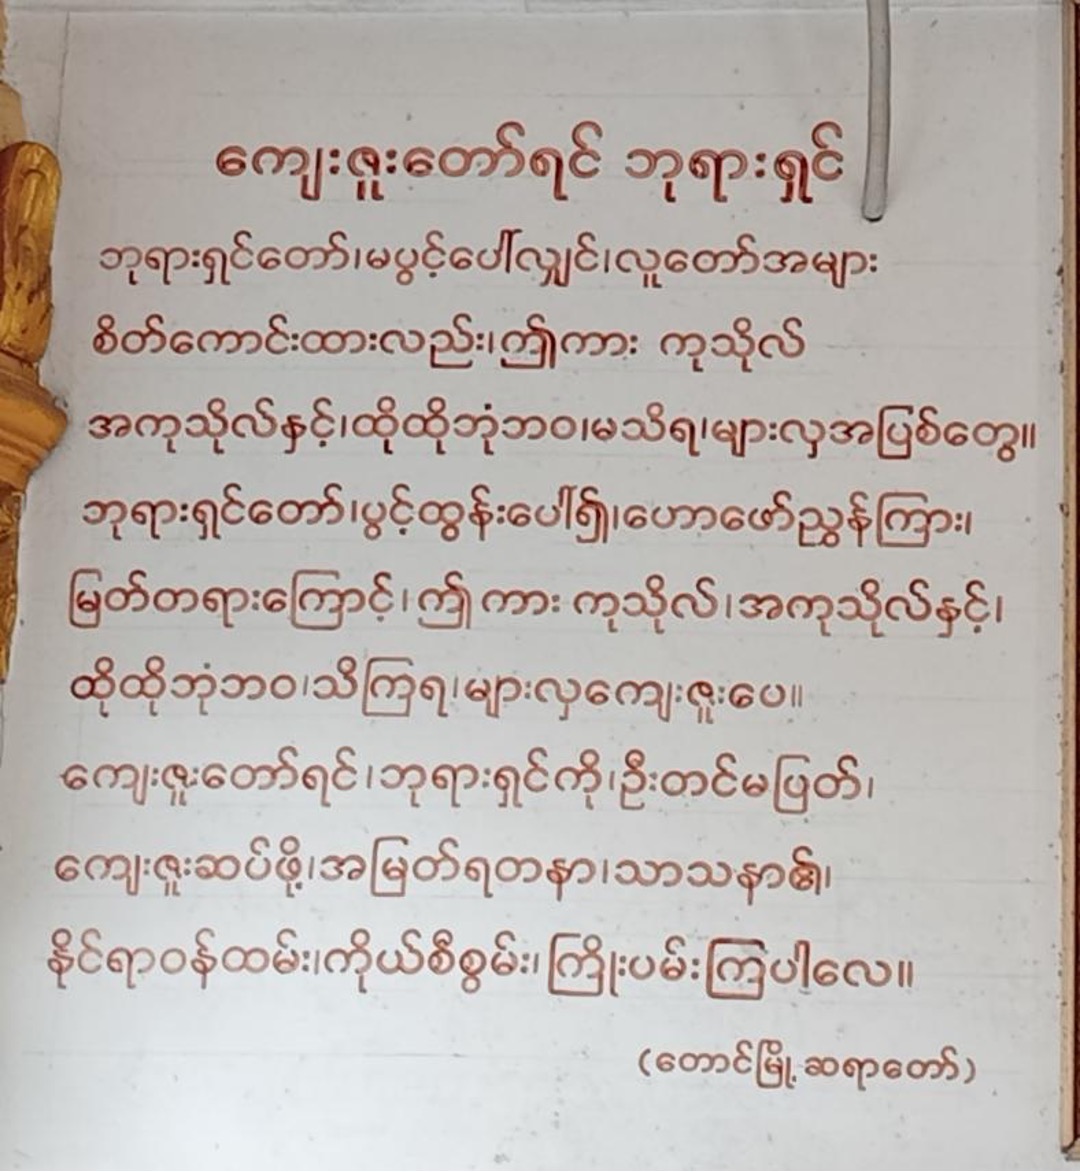 ကျေးဇူးတော်ရှင် ဘုရားရှင်
ဘုရားရှင်တော်၊မပွင့်ပေါ်လျှင်၊လူတော်အများ
စိတ်ကောင်းထားလည်း၊ဤကား ကုသိုလ်
အကုသိုလ်နှင့်၊ထိုထိုဘုံဘဝ၊မသိရ၊များလှအပြစ်တွေ။
ဘုရားရှင်တော်၊ပွင့်ထွန်းပေါ်၍၊ဟောဖော်ညွှန်ကြား၊
မြတ်တရားကြောင့်၊ဤ ကား ကုသိုလ်၊အကုသိုလ်နှင့်၊
ထိုထိုဘုံဘဝ၊သိကြရ၊များလှကျေးဇူးပေ။
ကျေးဇူးတော်ရှင်၊ဘုရားရှင်ကို၊ဦးတင်မပြတ်၊
ကျေးဇူးဆပ်ဖို့၊အမြတ်ရတနာ၊သာသနာ၏၊
နိုင်ရာဝန်ထမ်း၊ကိုယ်စီစွမ်း၊ကြိုးပမ်းကြပါလေ။
(တောင်မြို့ဆရာတော်)